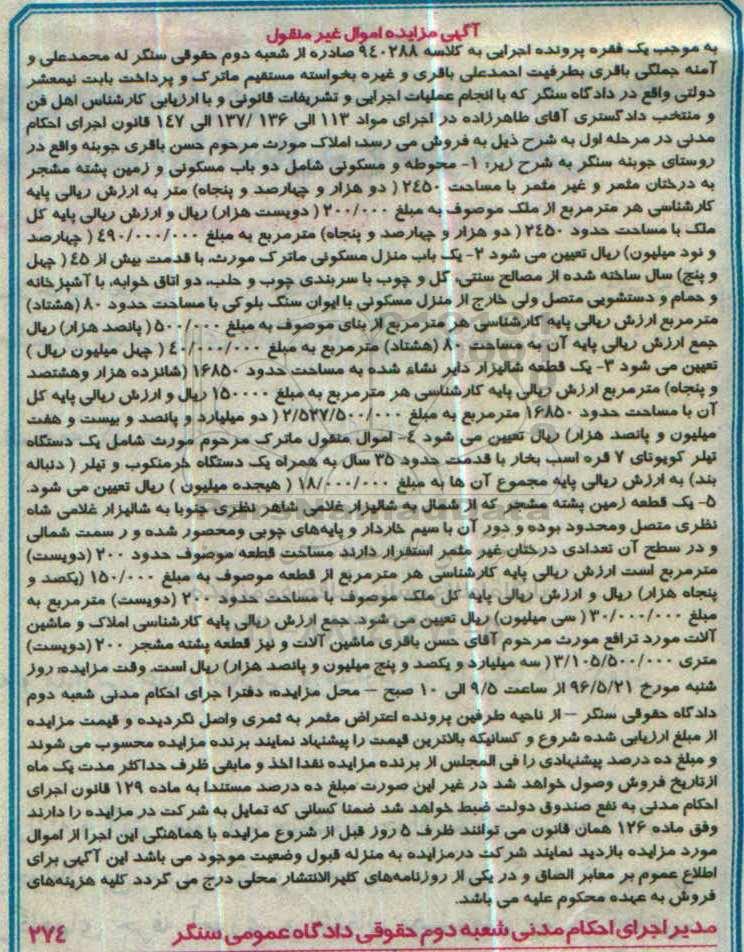 آگهی مزایده اموال غیر منقول
به موجب یک فقره پرونده اجرایی به کلاسه ۹۴۰۲۸۸ صادره از شعبه دوم حقوقی سنگر له محمدعلی و
آمنه جملگی باقری بطرفیت احمدعلی باقری و غیره بخواسته مستقیم ماترک و پرداخت بابت نیمعشر
دولتی واقع در دادگاه سنگر که با انجام عملیات اجرایی و تشریفات قانونی و با ارزیابی کارشناس اهل فن
و منتخب دادگستری آقای طاهرزاده در اجرای مواد ۱۱۳ الی ۱۳۶ /۱۳۷ الی ۱۴۷ قانون اجرای احکام
مدنی در مرحله اول به شرح ذیل به فروش می رسد: املاک مورث مرحوم حسن باقری جوبنه واقع در
روستای جوبنه سنگر به شرح زیر: ۱- محوطه و مسکونی شامل دو باب مسکونی و زمین پشته مشجر
به درختان مثمر و غیر مثمر با مساحت ۲۴۵۰ ( دو هزار و چهارصد و پنجاه) متر به ارزش ریالی پایه
کارشناسی هر مترمربع از ملک موصوف به مبلغ ۲۰۰/۰۰۰ ( دویست هزار) ریال و ارزش ریالی پایه کل
ملک با مساحت حدود ۲۴۵۰ ( دو هزار و چهارصد و پنجاه) مترمربع به مبلغ ۴۹۰/۰۰۰/۰۰۰ ( چهارصد
و نود میلیون) ریال تعیین می شود ۲- یک باب منزل مسکونی ماترک مورث، با قدمت بیش از ۴۵ ( چهل
و پنج) سال ساخته شده از مصالح سنتی، گل و چوب با سربندی چوب و حلب، دو اتاق خوابه، با آشپزخانه
و حمام و دستشویی متصل ولی خارج از منزل مسکونی با ایوان سنگ بلوکی با مساحت حدود ۸۰ (هشتاد)
مترمربع ارزش ریالی پایه کارشناسی هر مترمربع از بنای موصوف به مبلغ ۵۰۰/۰۰۰ ( پانصد هزار) ریال
جمع ارزش ریالی پایه آن به مساحت ۸۰ (هشتاد) مترمربع به مبلغ ۴۰/۰۰۰/۰۰۰ ( چهل میلیون ریال )
تعیین می شود ۳- یک قطعه شالیزار دایر نشاء شده به مساحت حدود ۱۶۸۵۰ (شانزده هزار وهشتصد
و پنجاه) مترمربع ارزش ریالی پایه کارشناسی هر مترمربع به مبلغ ۱۵۰۰۰۰ ریال و ارزش ریالی پایه کل
آن با مساحت حدود ۱۶۸۵۰ مترمربع به مبلغ ۲/۵۲۷/۵۰۰/۰۰۰ ( دو میلیارد و پانصد و بیست و هفت
میلیون و پانصد هزار) ریال تعیین می شود ۴- اموال منقول ماترک مرحوم مورث شامل یک دستگاه
تیلر کوبوتای ۷ قره اسب بخار با قدمت حدود ۳۵ سال به همراه یک دستگاه خرمنکوب و تیلر ( دنباله
بند) به ارزش ریالی پایه مجموع آن ها به مبلغ ۱۸/۰۰۰/۰۰۰ ( هیجده میلیون ) ریال تعیین می شود.
۵- یک قطعه زمین پشته مشجر که از شمال به شالیزار غلامی شاهر نظری جنوبا به شالیزار غلامی شاه
نظری متصل ومحدود بوده و دور آن با سیم خاردار و پایه‌های چوبی ومحصور شده و ر سمت شمالی
و در سطح آن تعدادی درختان غیر مثمر استقرار دارند مساحت قطعه موصوف حدود ۲۰۰ (دویست)
مترمربع است ارزش ریالی پایه کارشناسی هر مترمربع از قطعه موصوف به مبلغ ۱۵۰/۰۰۰ (یکصد و
پنجاه هزار) ریال و ارزش ریالی پایه کل ملک موصوف با مساحت حدود ۲۰۰ (دویست) مترمربع به
مبلغ ۳۰/۰۰۰/۰۰۰ ( سی میلیون) ریال تعیین می شود. جمع ارزش ریالی پایه کارشناسی املاک و ماشین
آلات مورد ترافع مورث مرحوم آقای حسن باقری ماشین آلات و نیز قطعه پشته مشجر ۲۰۰ (دویست)
متری ۳/۱۰۵/۵۰۰/۰۰۰ ( سه میلیارد و یکصد و پنج میلیون و پانصد هزار) ریال است. وقت مزایده: روز
شنبه مورخ ۹۶/۵/۲۱ از ساعت ۹/۵ الی ۱۰ صبح – محل مزایده: دفترا جرای احکام مدنی شعبه دوم
دادگاه حقوقی سنگر – از ناحیه طرفین پرونده اعتراض مثمر به ثمری واصل نگردیده و قیمت مزایده
از مبلغ ارزیابی شده شروع و کسانیکه بالاترین قیمت را پیشنهاد نمایند برنده مزایده محسوب می شوند
و مبلغ ده درصد پیشنهادی را فی المجلس از برنده مزایده نقدا اخذ و مابقی ظرف حداکثر مدت یک ماه
ازتاریخ فروش وصول خواهد شد در غیر این صورت مبلغ ده درصد مستندا به ماده ۱۲۹ قانون اجرای
احکام مدنی به نفع صندوق دولت ضبط خواهد شد ضمنا کسانی که تمایل به شرکت در مزایده را دارند
وفق ماده ۱۲۶ همان قانون می توانند ظرف ۵ روز قبل از شروع مزایده با هماهنگی این اجرا از اموال
مورد مزایده بازدید نمایند شرکت درمزایده به منزله قبول وضعیت موجود می باشد این آگهی برای
اطلاع عموم بر معابر الصاق و در یکی از روزنامه‌های کثیرالانتشار محلی درج می گردد کلیه هزینه‌های
فروش به عهده محکوم علیه می باشد.
مدیر اجرای احکام مدنی شعبه دوم حقوقی دادگاه عمومی سنگر ۲۷۴